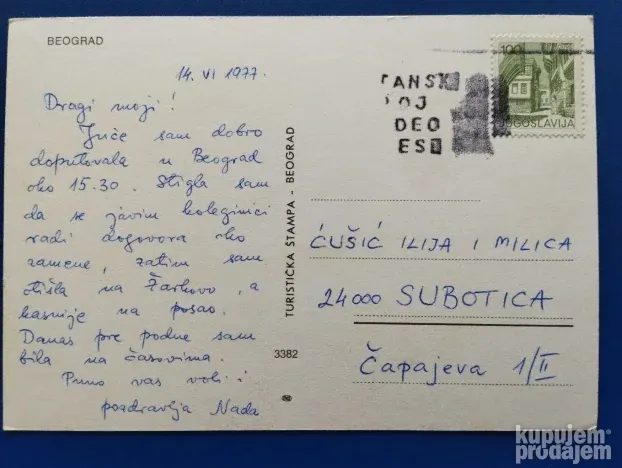 BEOGRAD
14. VI 1977.
Dragi moji!
Juče sam dobro
doputovala u Beograd
oko 15.30. Stigla sam
da se javim koleginici
radi dogovora oko
zamene, zatim sam
otišla na Žarkovo, a
kasnije na posao.
Danas pre podne sam
bila na časovima.
Puno vas voli i
pozdravlja Nada
TURISTIČKA ŠTAMPA - BEOGRAD
3382
ANSK
OJ
DEO
ES
100
JUGOSLAVIJA
ĆUŠIĆ ILIJA I MILICA
24000 SUBOTICA
Čapajeva 1/II
kupujem
prodajem